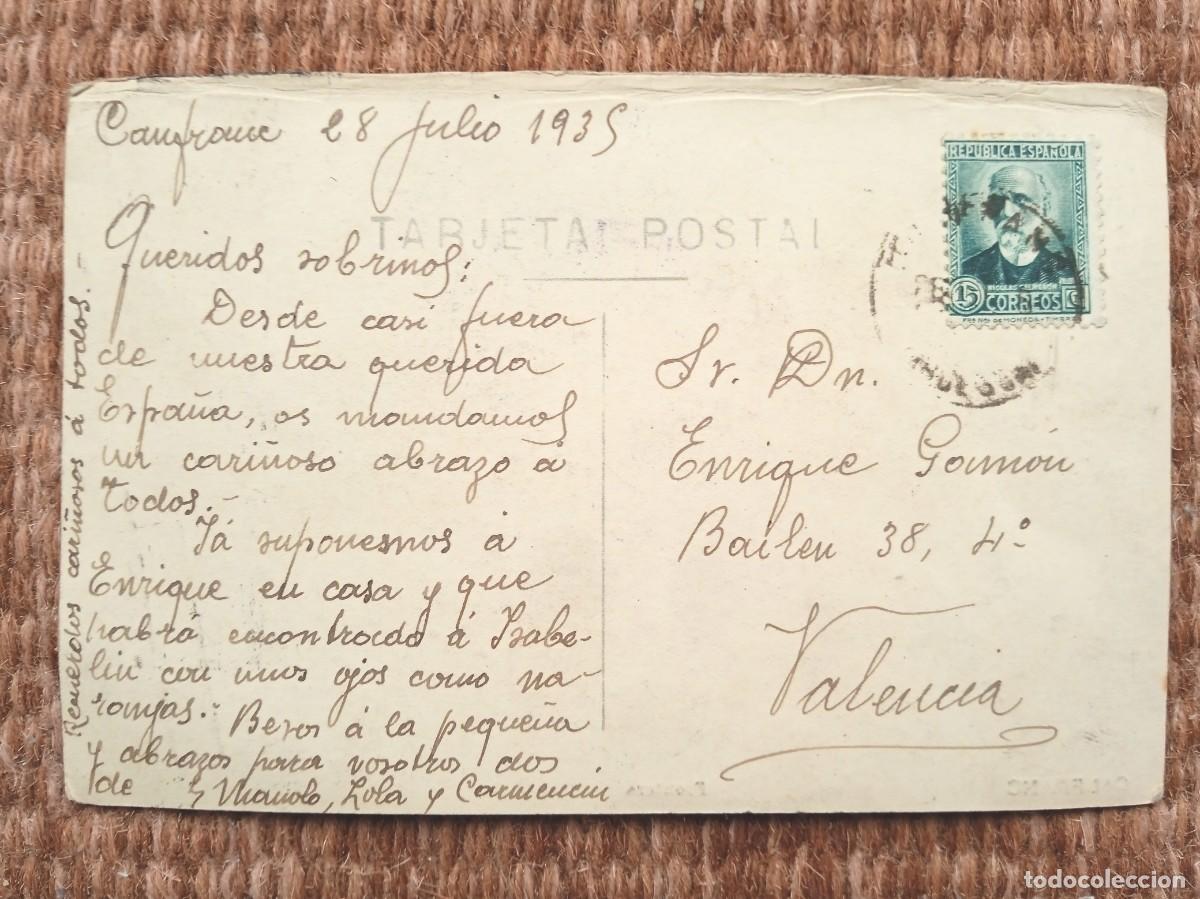 Canfranc 28 Julio 1935
TARJETA POSTAL
REPUBLICA ESPAÑOLA
NICOLAS SALMERON
15 CORREOS C
Queridos sobrinos:
Desde casi fuera
de nuestra querida
España, os mandamos
un cariñoso abrazo á
todos.-
Yá suponemos á
Enrique en casa y que
habrá encontrado á Isabe-
lin con unos ojos como na-
ranjas.- Besos á la pequeña
y abrazos para vosotros dos
de Manolo, Lola y Carmencin
Recuerdos cariñosos á todos.-
Sr. Dn.
Enrique Gamón
Bailen 38, 4º
Valencia
todocoleccion